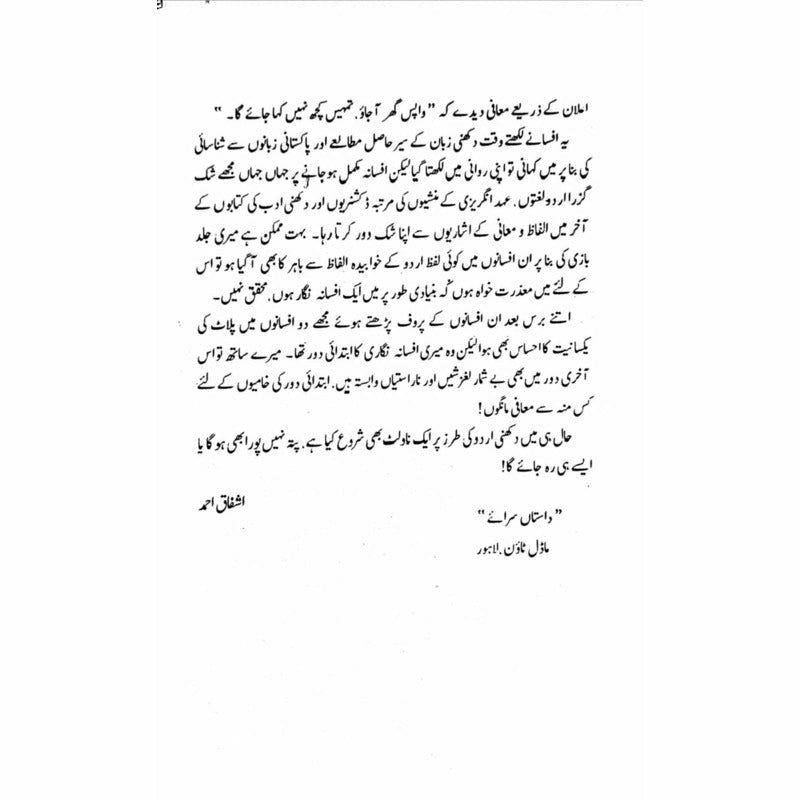 اعلان کے ذریعے معافی دیدے کہ ”واپس گھر آجاؤ۔ تمہیں کچھ نہیں کہا جائے گا۔ “
یہ افسانے لکھتے وقت دکھنی زبان کے سیر حاصل مطالعے اور پاکستانی زبانوں سے شناسائی
کی بنا پر میں کہانی تو اپنی روانی میں لکھتا گیا لیکن افسانہ مکمل ہو جانے پر جہاں جہاں مجھے شک
گزرا اردو لغتوں۔ عہد انگریزی کے منشیوں کی مرتبہ ڈکشنریوں اور دکھنی ادب کی کتابوں کے
آخر میں الفاظ و معانی کے اشاریوں سے اپنا شک دور کرتا رہا۔ بہت ممکن ہے میری جلد
بازی کی بنا پر ان افسانوں میں کوئی لفظ اردو کے خوابیدہ الفاظ سے باہر کا بھی آ گیا ہو تو اس
کے لئے میں معذرت خواہ ہوں کہ بنیادی طور پر میں ایک افسانہ نگار ہوں۔ محقق نہیں۔
اتنے برس بعد ان افسانوں کے پروف پڑھتے ہوئے مجھے دو افسانوں میں پلاٹ کی
یکسانیت کا احساس بھی ہوا لیکن وہ میری افسانہ نگاری کا ابتدائی دور تھا۔ میرے ساتھ تو اس
آخری دور میں بھی بے شمار لغزشیں اور ناراستیاں وابستہ ہیں۔ ابتدائی دور کی خامیوں کے لئے
کس منہ سے معافی مانگوں!
حال ہی میں دکھنی اردو کی طرز پر ایک ناولٹ بھی شروع کیا ہے۔ پتہ نہیں پورا بھی ہو گا یا
ایسے ہی رہ جائے گا!
اشفاق احمد
”داستاں سرائے“
ماڈل ٹاؤن۔ لاہور